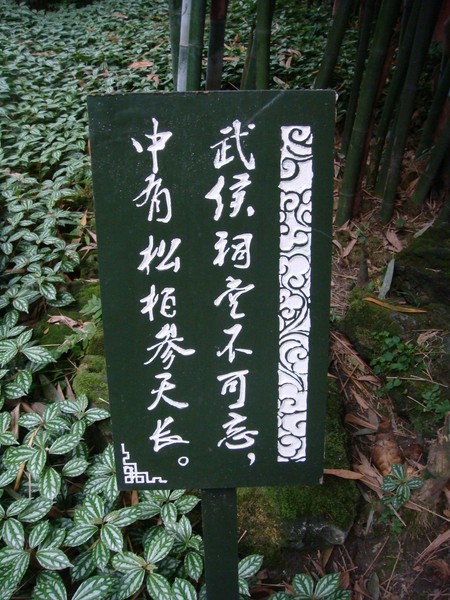 武侯祠堂不可忘，
中有松柏参天长。